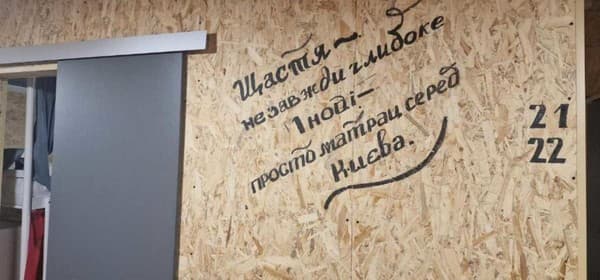 Щастя~
не завжди глибоке
Іноді-
просто матрац серед
Києва.
21
22